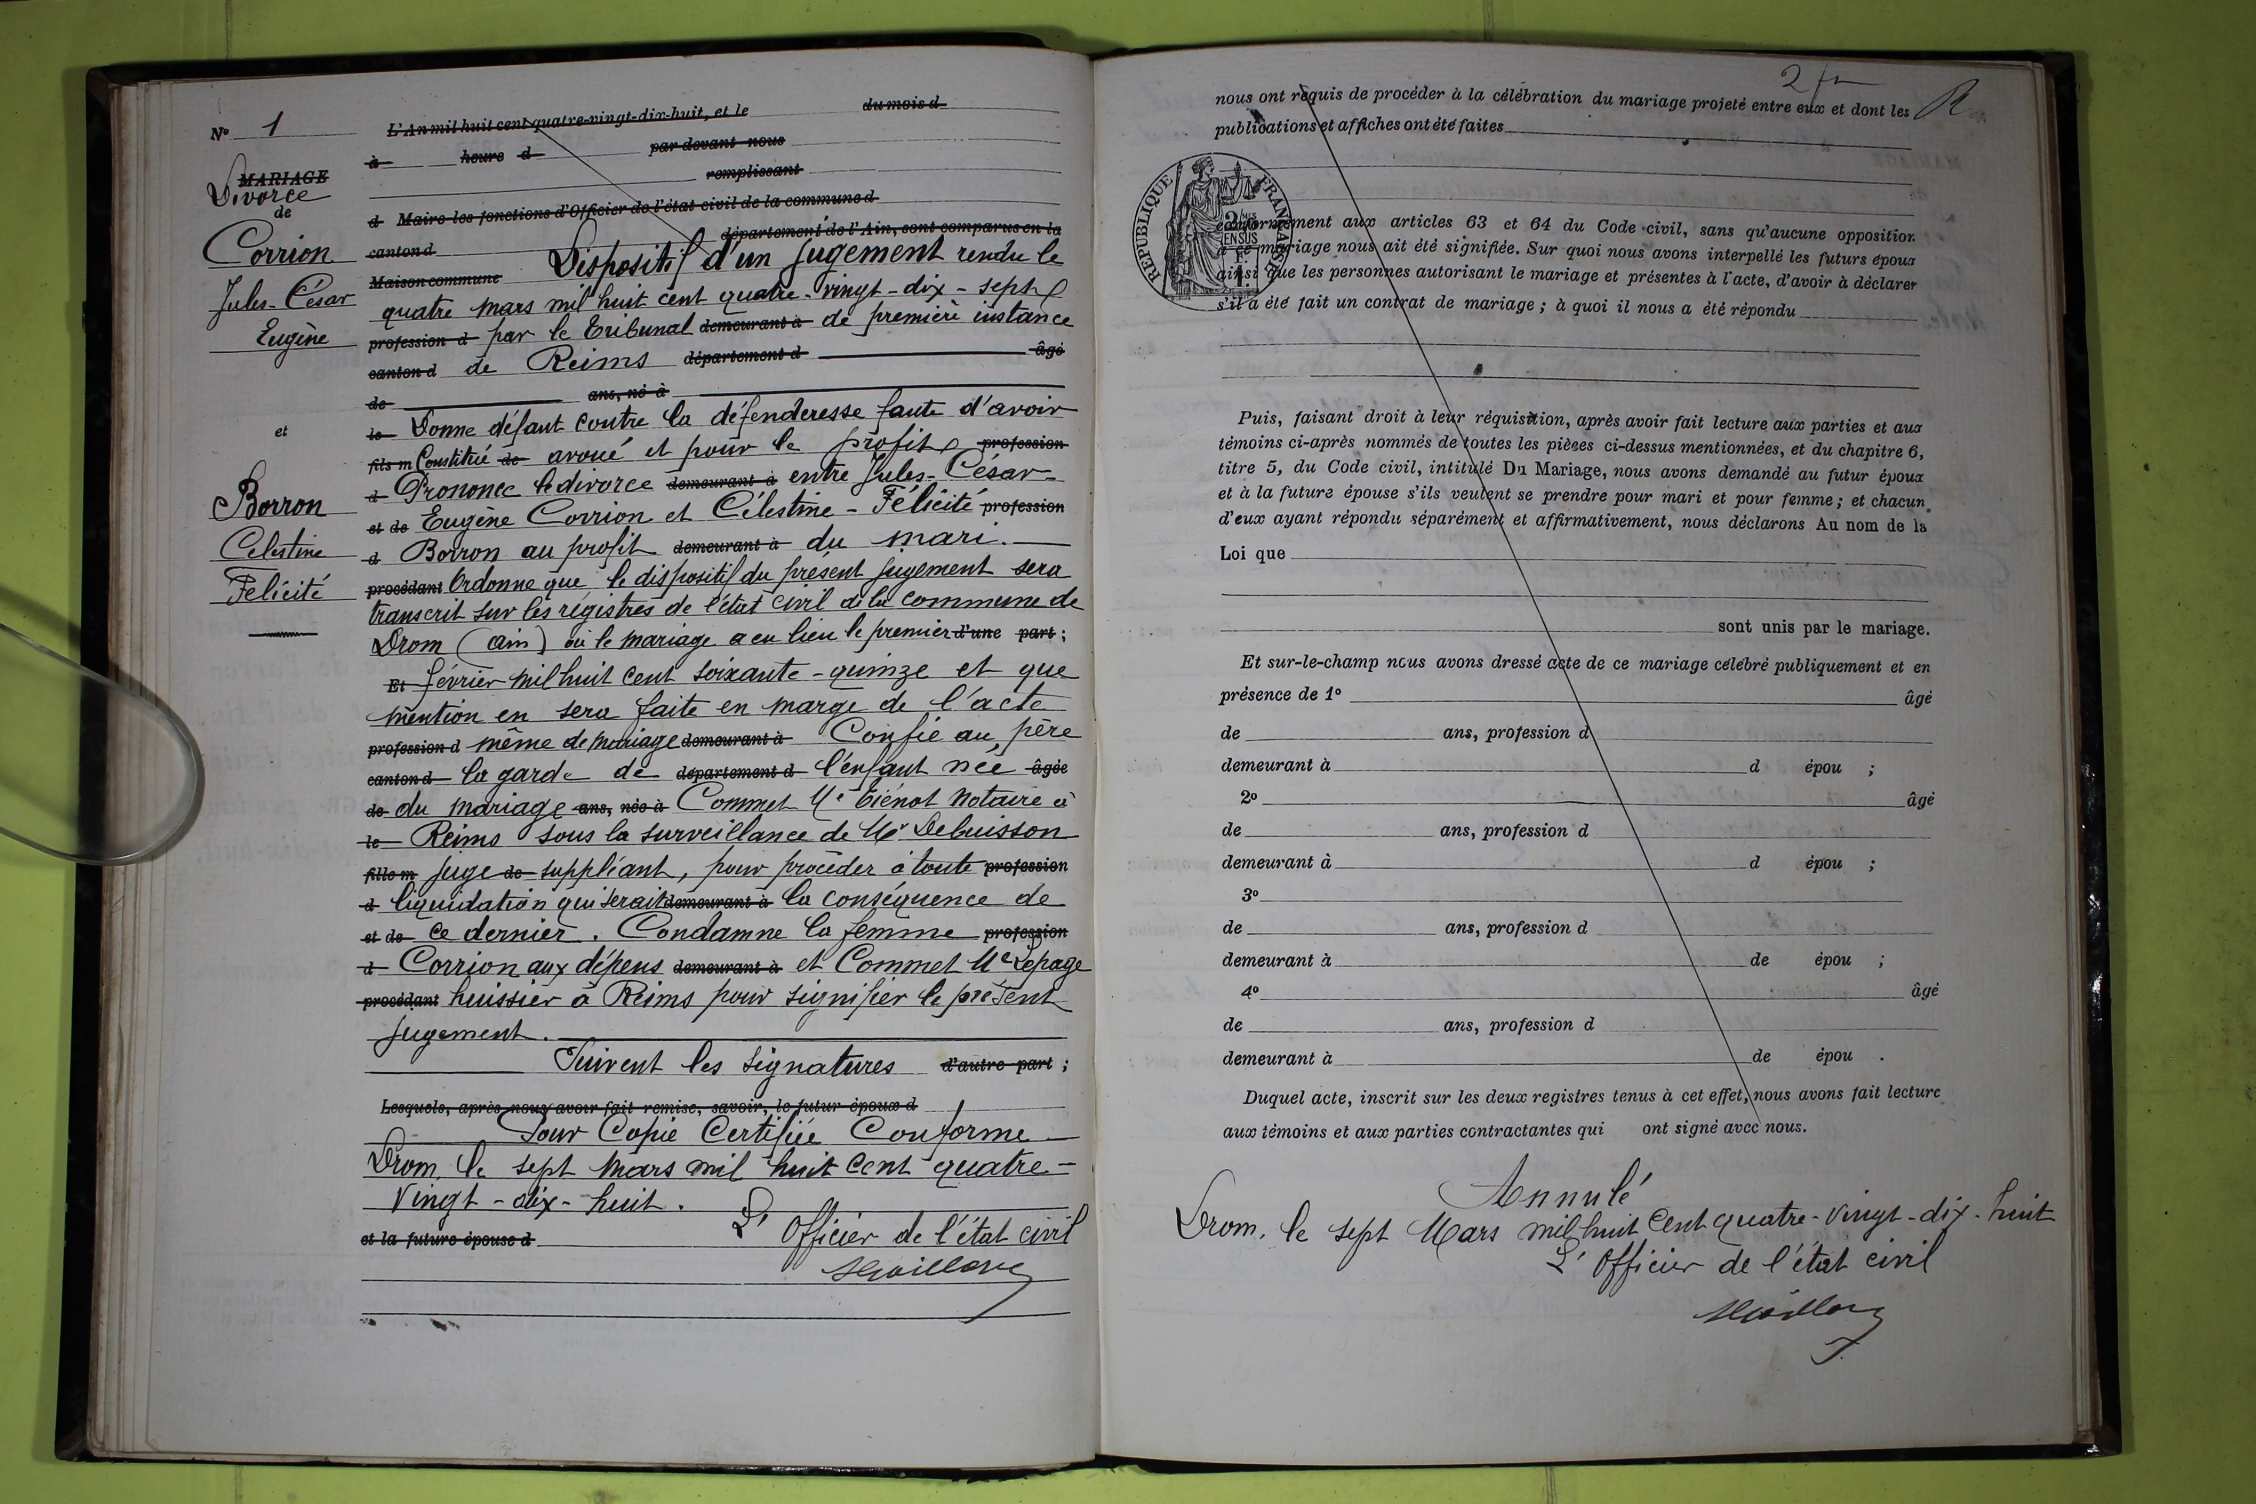 Nº 1
MARIAGE
Divorce
de
Corrion
Jules-César
Eugène
et
Borron
Celestine
Félicité
L'An mil huit cent quatre-vingt-dix-huit, et le du mois d
à heure d par devant nous
remplissant
d Maire les fonctions d'Officier de l'état civil de la commune d
département de l'Ain, sont comparus en la
canton d
Maison commune Dispositif d'un jugement rendu le
quatre mars mil huit cent quatre-vingt-dix-sept
profession d par le Tribunal demeurant à de première instance
canton d de Reims département d âgé
de ans, né à
le Donne défaut contre la défenderesse faute d'avoir
fils m Constitué de avoué et pour le profit, profession
d Prononce le divorce demeurant à entre Jules-César-
et de Eugène Corrion et Célestine-Félicité profession
d Borron au profit demeurant à du mari.
procédant Ordonne que le dispositif du présent jugement sera
transcrit sur les régistres de l'état civil de la commune de
Drom (Ain) où le mariage a eu lieu le premier d'une part ;
Et février mil huit cent soixante-quinze et que
mention en sera faite en marge de l'acte
profession d même de mariage demeurant à Confie au père
canton d la garde de département d l'enfant née âgée
de du mariage ans, née à Commet Me Tiénot Notaire à
le Reims sous la surveillance de Mr Debuisson
fille m juge de suppléant, pour procéder à toute profession
d liquidation qui serait demeurant à la conséquence de
et de ce dernier. Condamne la femme profession
d Corrion aux dépens demeurant à et Commet Me Lepage
procédant huissier à Reims pour signifier le présent
jugement.
Suivent les signatures d'autre part ;
Lesquels, après nous avoir fait remise, savoir, le futur époux d
Pour Copie Certifiée Conforme
Drom, le sept mars mil huit cent quatre-
vingt-dix-huit.
L'Officier de l'état civil
et la future épouse d
2
R
nous ont requis de procéder à la célébration du mariage projeté entre eux et dont les
publications et affiches ont été faites
RÉPUBLIQUE FRANÇAISE
conformément aux articles 63 et 64 du Code civil, sans qu'aucune opposition
à ce mariage nous ait été signifiée. Sur quoi nous avons interpellé les futurs époux
ainsi que les personnes autorisant le mariage et présentes à l'acte, d'avoir à déclarer
s'il a été fait un contrat de mariage ; à quoi il nous a été répondu
Puis, faisant droit à leur réquisition, après avoir fait lecture aux parties et aux
témoins ci-après nommés de toutes les pièces ci-dessus mentionnées, et du chapitre 6,
titre 5, du Code civil, intitulé Du Mariage, nous avons demandé au futur époux
et à la future épouse s'ils veulent se prendre pour mari et pour femme ; et chacun
d'eux ayant répondu séparément et affirmativement, nous déclarons Au nom de la
Loi que
sont unis par le mariage.
Et sur-le-champ nous avons dressé acte de ce mariage célébré publiquement et en
présence de 1º âgé
de ans, profession d
demeurant à d épou ;
2º âgé
de ans, profession d
demeurant à d épou ;
3º
de ans, profession d
demeurant à de épou ;
4º âgé
de ans, profession d
demeurant à de épou .
Duquel acte, inscrit sur les deux registres tenus à cet effet, nous avons fait lecture
aux témoins et aux parties contractantes qui ont signé avec nous.
Annulé
Drom, le sept Mars mil huit Cent quatre-vingt-dix-huit
L'Officier de l'état civil